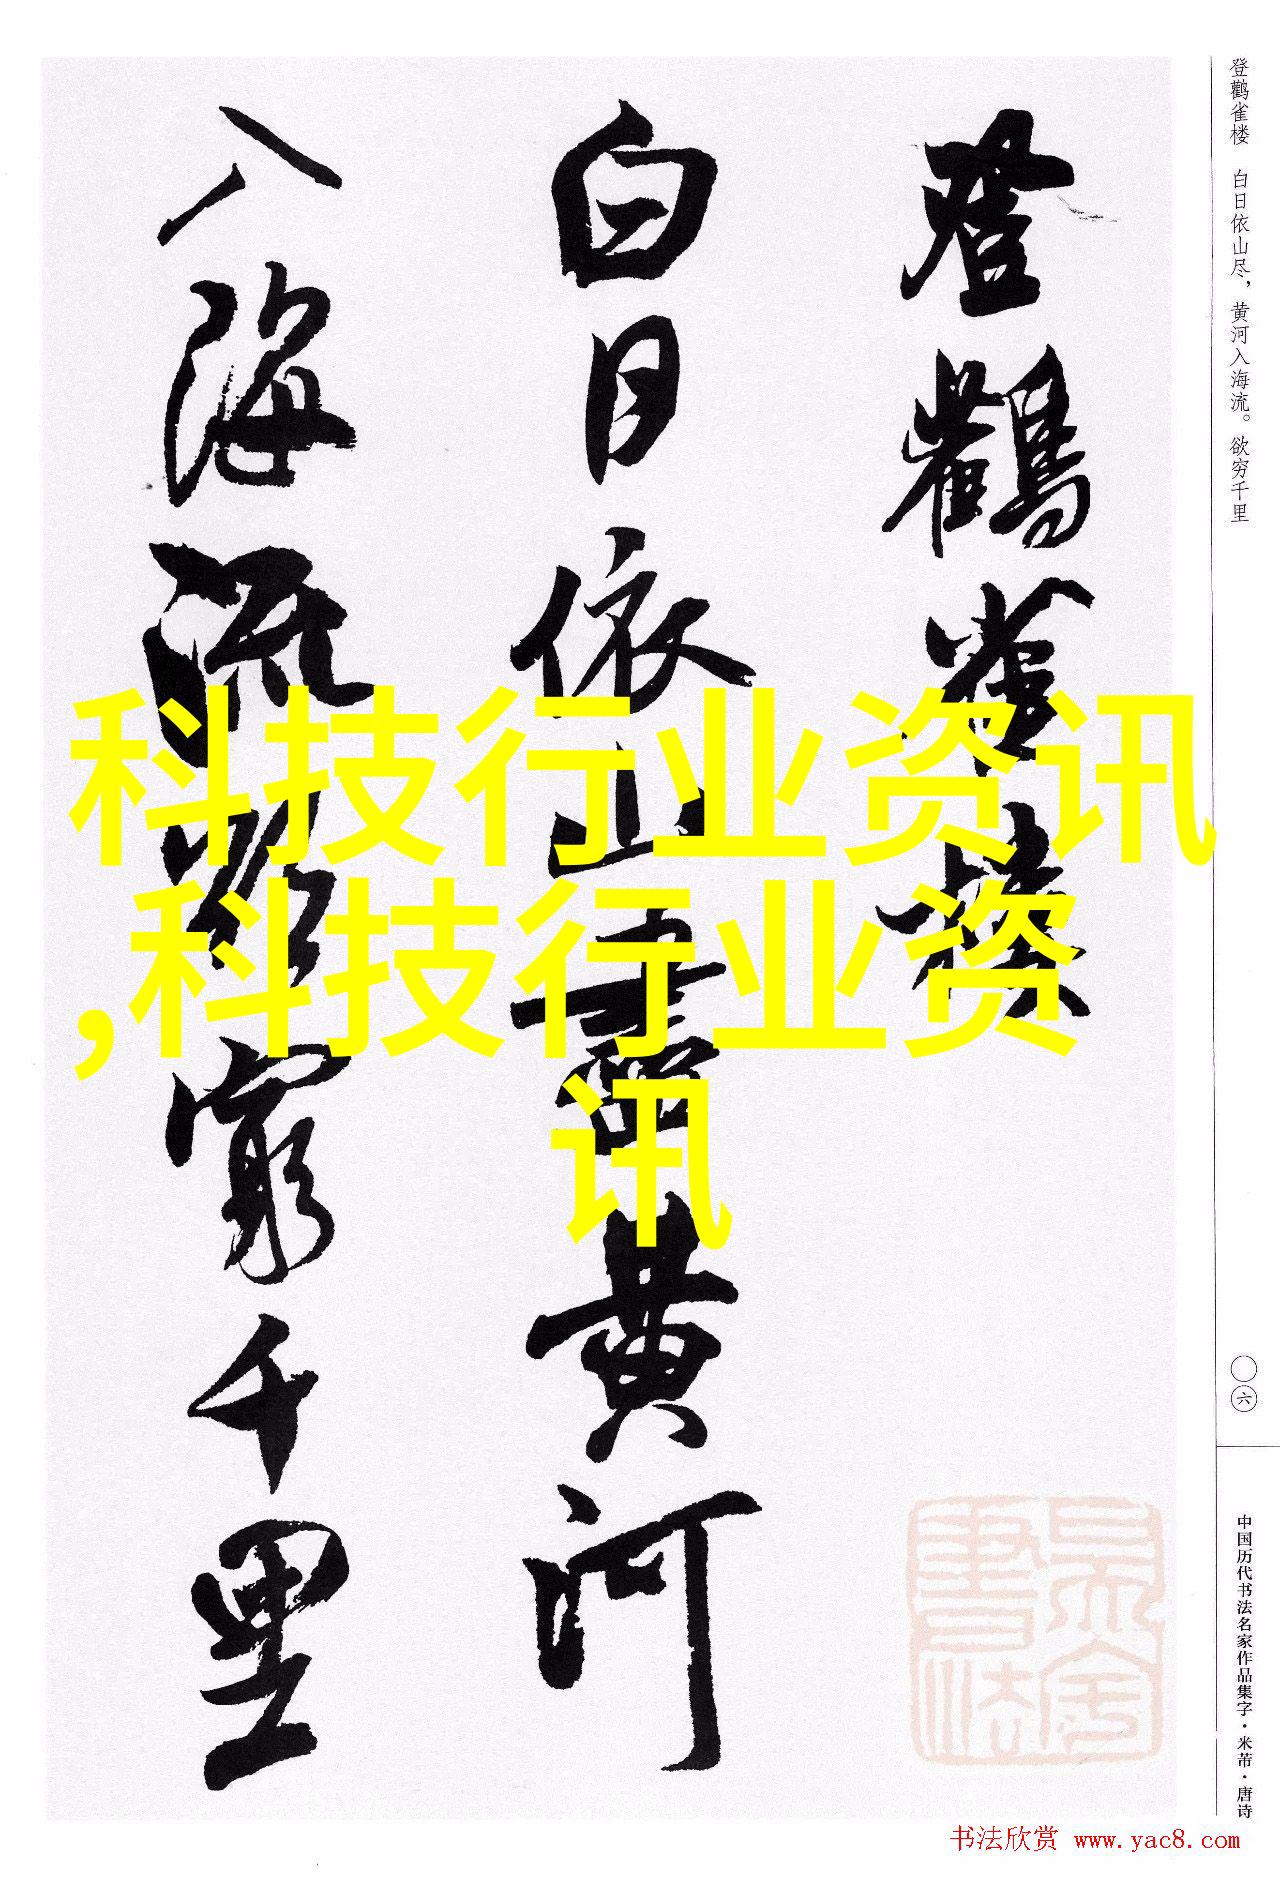 登鹳雀楼 白日依山尽，黄河入海流。欲穷千里
登鸛雀樓
白日依山盡黃河
入海流欲窮千里
科技行业资讯
,科技行业资
讯
〇六
中国历代书法名家作品集字·米芾·唐诗
书法欣赏 www.yac8.com